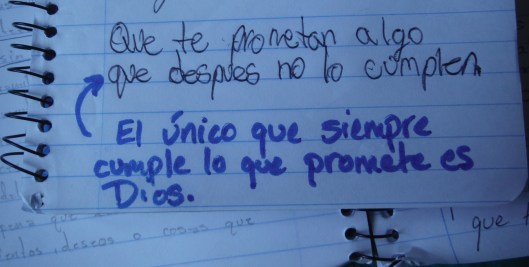 Que te prometan algo
que despues no lo cumplen
El único que siempre
cumple lo que promete es
Dios.
que
deseos o cosas que
que